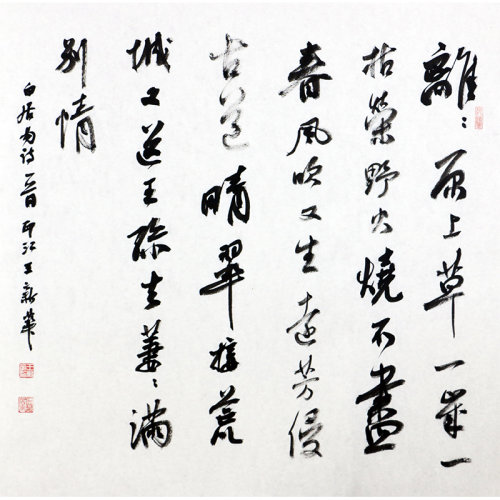 離々原上草一歲一
枯榮野火燒不盡
春風吹又生遠芳侵
古道晴翠接荒
城又送王孫去萋々滿
別情
白居易诗一首印江王新華